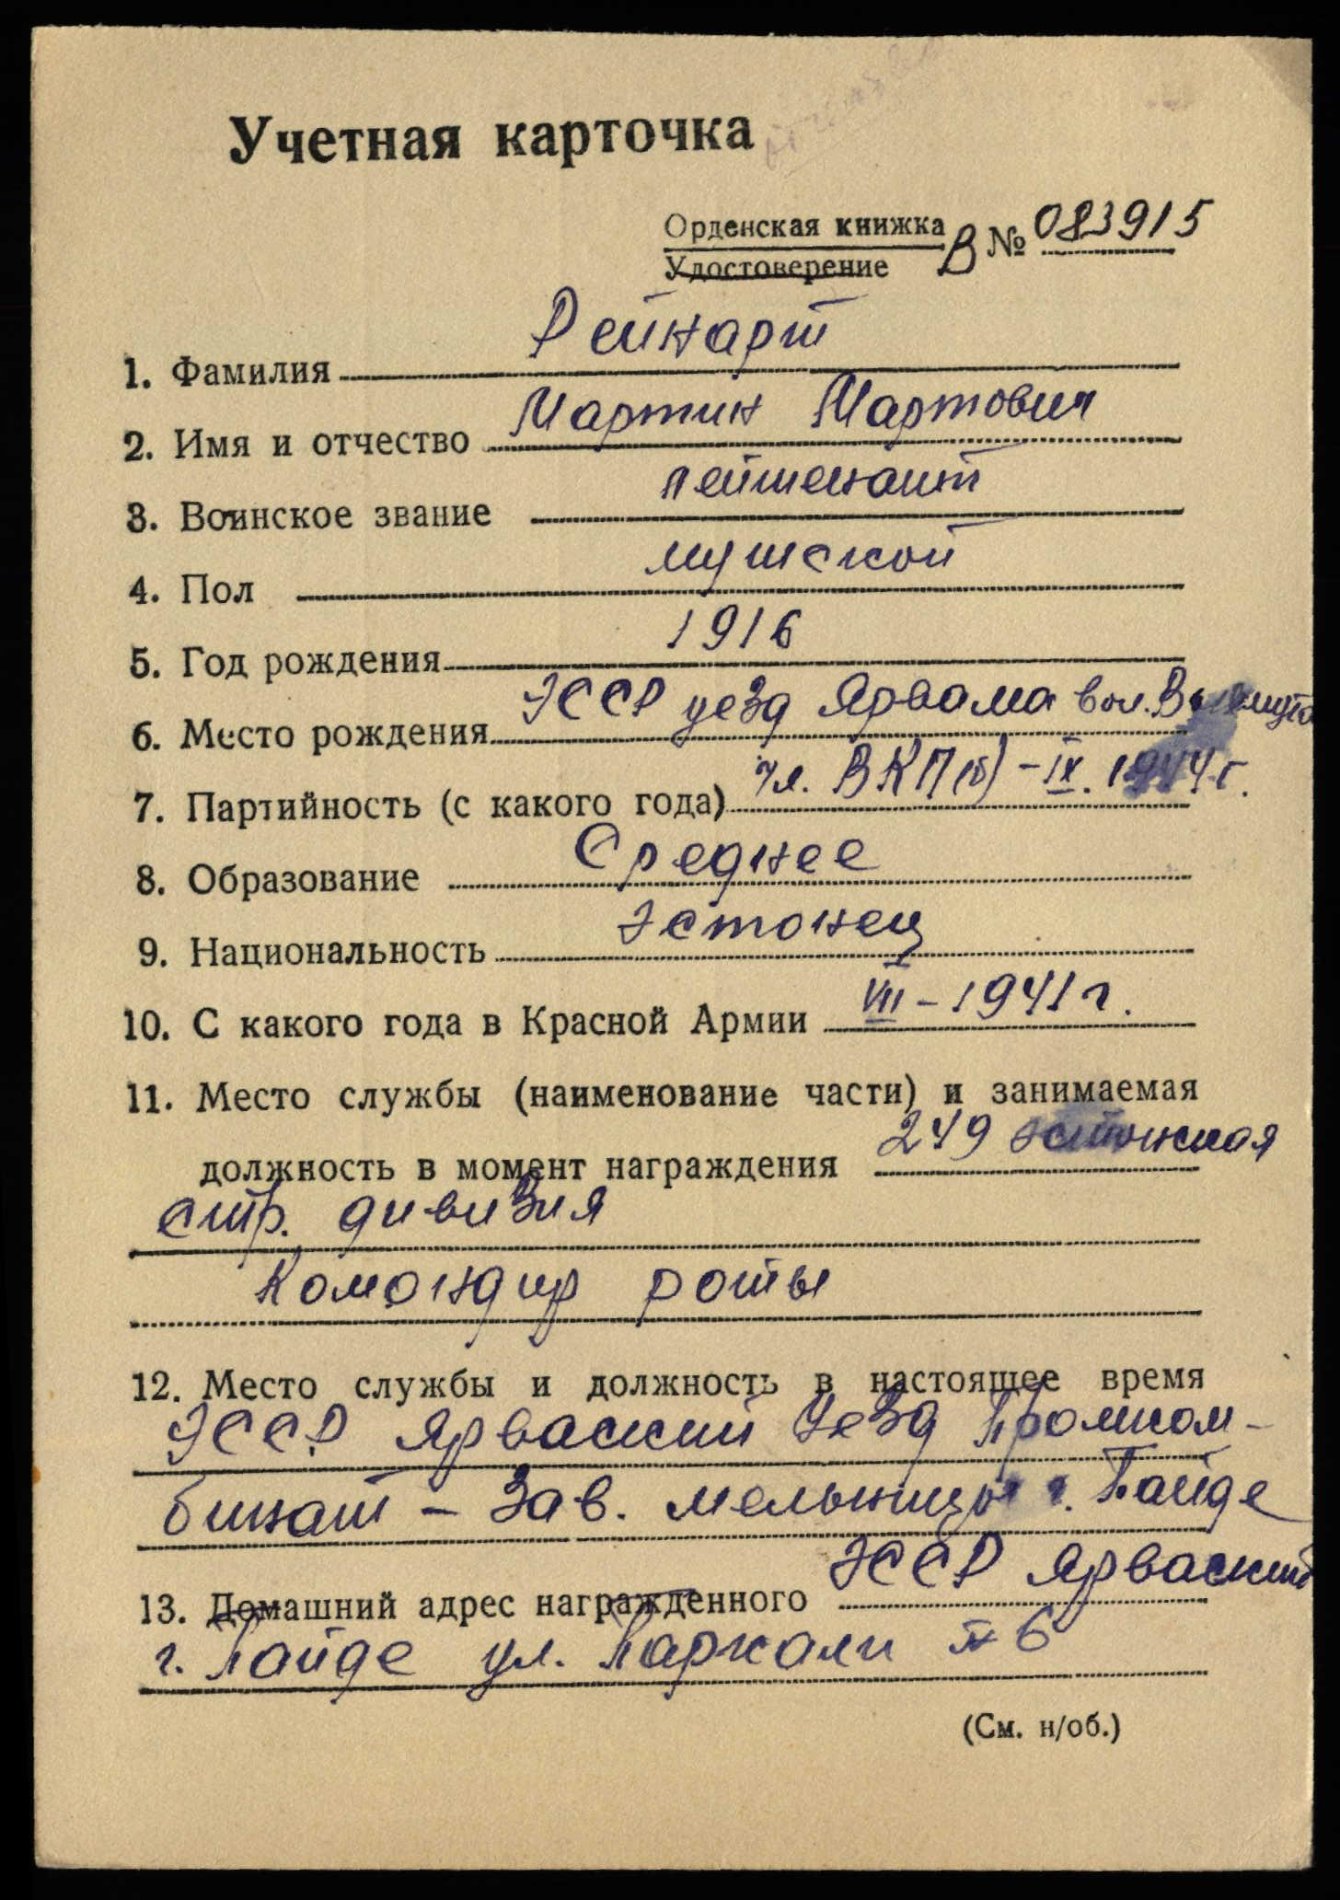 Учетная карточка
Орденская книжка
Удостоверение
В № 083915
1. Фамилия Рейнарт
2. Имя и отчество Мартин Мартович
3. Воинское звание лейтенант
4. Пол мужской
5. Год рождения 1916
6. Место рождения ЭССР уезд Ярвама вол.
7. Партийность (с какого года) чл. ВКП(б) – IX. 1944 г.
8. Образование Среднее
9. Национальность Эстонец
10. С какого года в Красной Армии VIII – 1941 г.
11. Место службы (наименование части) и занимаемая
должность в момент награждения 249 эстонская
стр. дивизия
Командир роты
12. Место службы и должность в настоящее время
ЭССР Ярваский уезд Промком-
бинат – Зав. мельницы г. Пайде
13. Домашний адрес награжденного ЭССР Ярваский
г. Пайде ул. Паркали № 6
(См. н/об.)